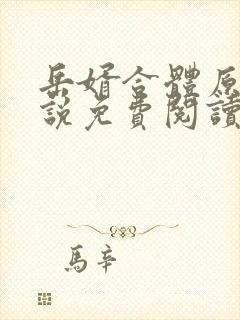 岳婿合體原
說免費閱讀
馬辛